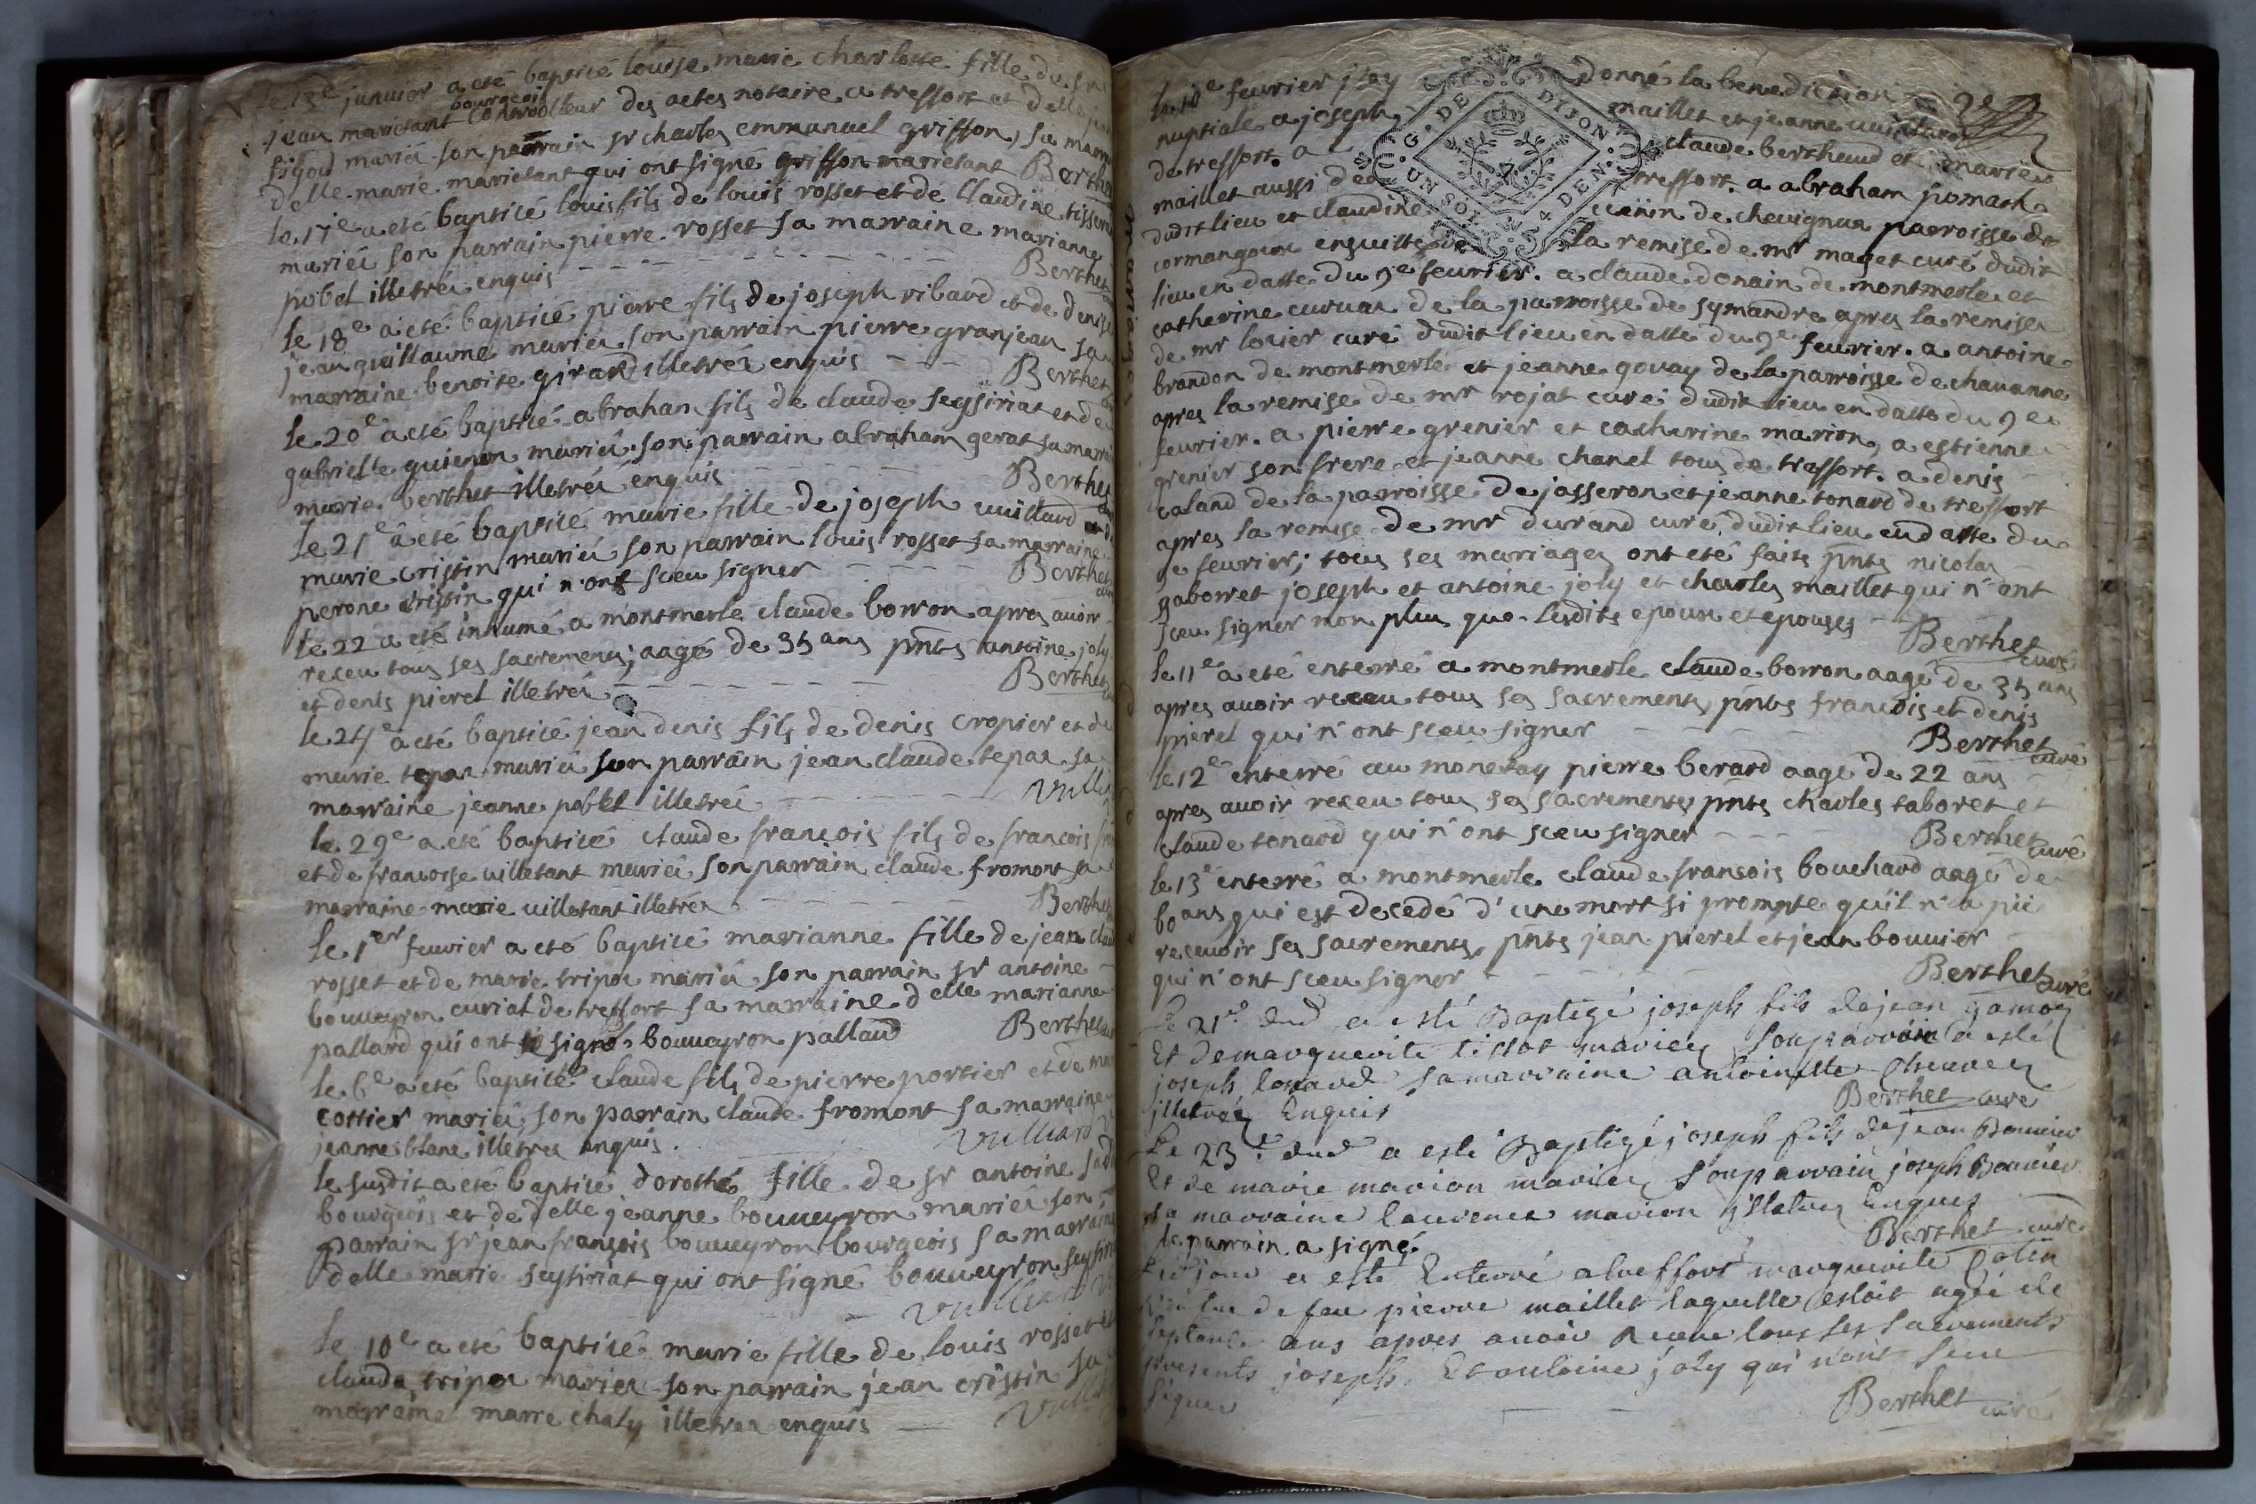 le 13e janvier a eté baptisé louise marie charlotte fille du sr
jean marictant bourgeois controlleur des actes notaire a tressort et delle
sigou mariés son parrain sr charles emmanuel griffon, sa
delle marie marictant qui ont signé griffon marictant Berthet
le 17e a eté baptisé louis fils de louis rosset et de claudine
mariés son parrain pierre rosset sa marraine marianne
pobel illetrés enquis Berthet
le 18e a eté baptisé pierre fils de joseph ribaud et de denise
jean guillaume mariés son parrain pierre granjean sa
marraine benoite girard illetrés enquis Berthet
le 20e a eté baptisé abraham fils de claude seysiriat et de
gabrielle guienon mariés son parrain abraham gerat sa
marie berthet illetrés enquis Berthet
le 21e a eté baptisé marie fille de joseph vuillard et
marie cristin mariés son parrain louis rosset sa marraine
perone cristin qui n'ont sceu signer Berthet
le 22 a eté inhumé a montmerle claude borron apres avoir
receu tous ses sacrements; aagé de 35 ans pnts antoine joly
et denis pierel illetrés Berthet
le 24e a eté baptisé jean denis fils de denis cropier et de
marie tepax mariés son parrain jean claude tepax sa
marraine jeanne pobel illetrés
le 29e a eté baptisé claude françois fils de françois
et de francoise villetant mariés son parrain claude fromont sa
marraine marie villetant illetrés Berthet
le 1er fevrier a eté baptisé marianne fille de jean
rosset et de marie tripoz mariés son parrain sr antoine
bouveyron curial de tressort sa marraine delle marianne
pallard qui ont signé bouveyron pallaud Berthet
le 6e a eté baptisé claude fils de pierre portier et de
cottier mariés son parrain claude fromont sa marraine
jeanne blanc illetrés enquis. Vuillard
le susdit a eté baptisé dorothé fille de sr antoine
bourgeois et de delle jeanne bouveyron mariés son
parrain sr jean françois bouveyron bourgeois sa marraine
delle marie seysiriat qui ont signé bouveyron
Vuillard
le 10e a eté baptisé marie fille de louis rosset et
clauda tripoz mariés son parrain jean cristin sa
marraine marie chaty illetrés enquis
le 10e fevrier j'ay donné la benediction 9e
nuptiale a joseph maillet et jeanne
de tressort. a claude berthaud et marie
maillet aussi de tressort. a abraham pomath
dudit lieu et claudine de chevignat parroisse de
cormangoux ensuitte de la remise de mr maget curé dudit
lieu en datte du 9e fevrier. a claude donain de montmerle et
catherine curvat de la parroisse de symandre apres la remise
de mr lovier curé dudit lieu en datte du 9e fevrier. a antoine
brandon de montmerle et jeanne govay de la parroisse de chavanne
apres la remise de mr rojat curé dudit lieu en datte du 9e
fevrier. a pierre grenier et catherine marion, a estienne
grenier son frere et jeanne chanel tous de tressort. a denis
caland de la parroisse de jasseron et jeanne tonard de tressort
apres la remise de mr durand curé dudit lieu en datte du
9e fevrier; tous ses mariages ont eté faits pnts nicolas
gaborret joseph et antoine joly et charles maillet qui n'ont
sceu signer non plus que lesdits epoux et epouses
Berthet curé
le 11e a eté enterré a montmerle claude borron aagé de 35 ans
apres avoir receu tous ses sacrements, pnts françois et denis
pierel qui n'ont sceu signer Berthet curé
le 12e enterré au monetay pierre berard aagé de 22 ans
apres avoir receu tous ses sacrements pnts charles taboret et
claude tonard qui n'ont sceu signer Berthet curé
le 13e enterré a montmerle claude françois bouchard aagé de
60 ans qui est decedé d'une mort si prompte qu'il n'a pu
recevoir ses sacrements, pnts jean pierel et jean bouvier
qui n'ont sceu signer Berthet curé
Le 21e dud a esté Baptizé joseph fils de jean
Et de marguerite tissot mariez son parrain a esté
joseph tonard sa marraine antoinette
illetrez Enquis Berthet curé
Le 23e dud a esté Baptizé joseph fils de jean Bouvier
Et de marie marion mariez son parrain joseph Bouvier
sa marraine laurence marion illetrez Enquis
le parrain a signé. Berthet curé
jour a esté Enterré a tressort marguerite
de feu pierre maillet laquelle estoit agé de
septante ans apres avoir receu tous ses sacrements
presents joseph Et antoine joly qui n'ont sceu
signer Berthet curé
G. DE DIJON
UN SOL 4 DEN.